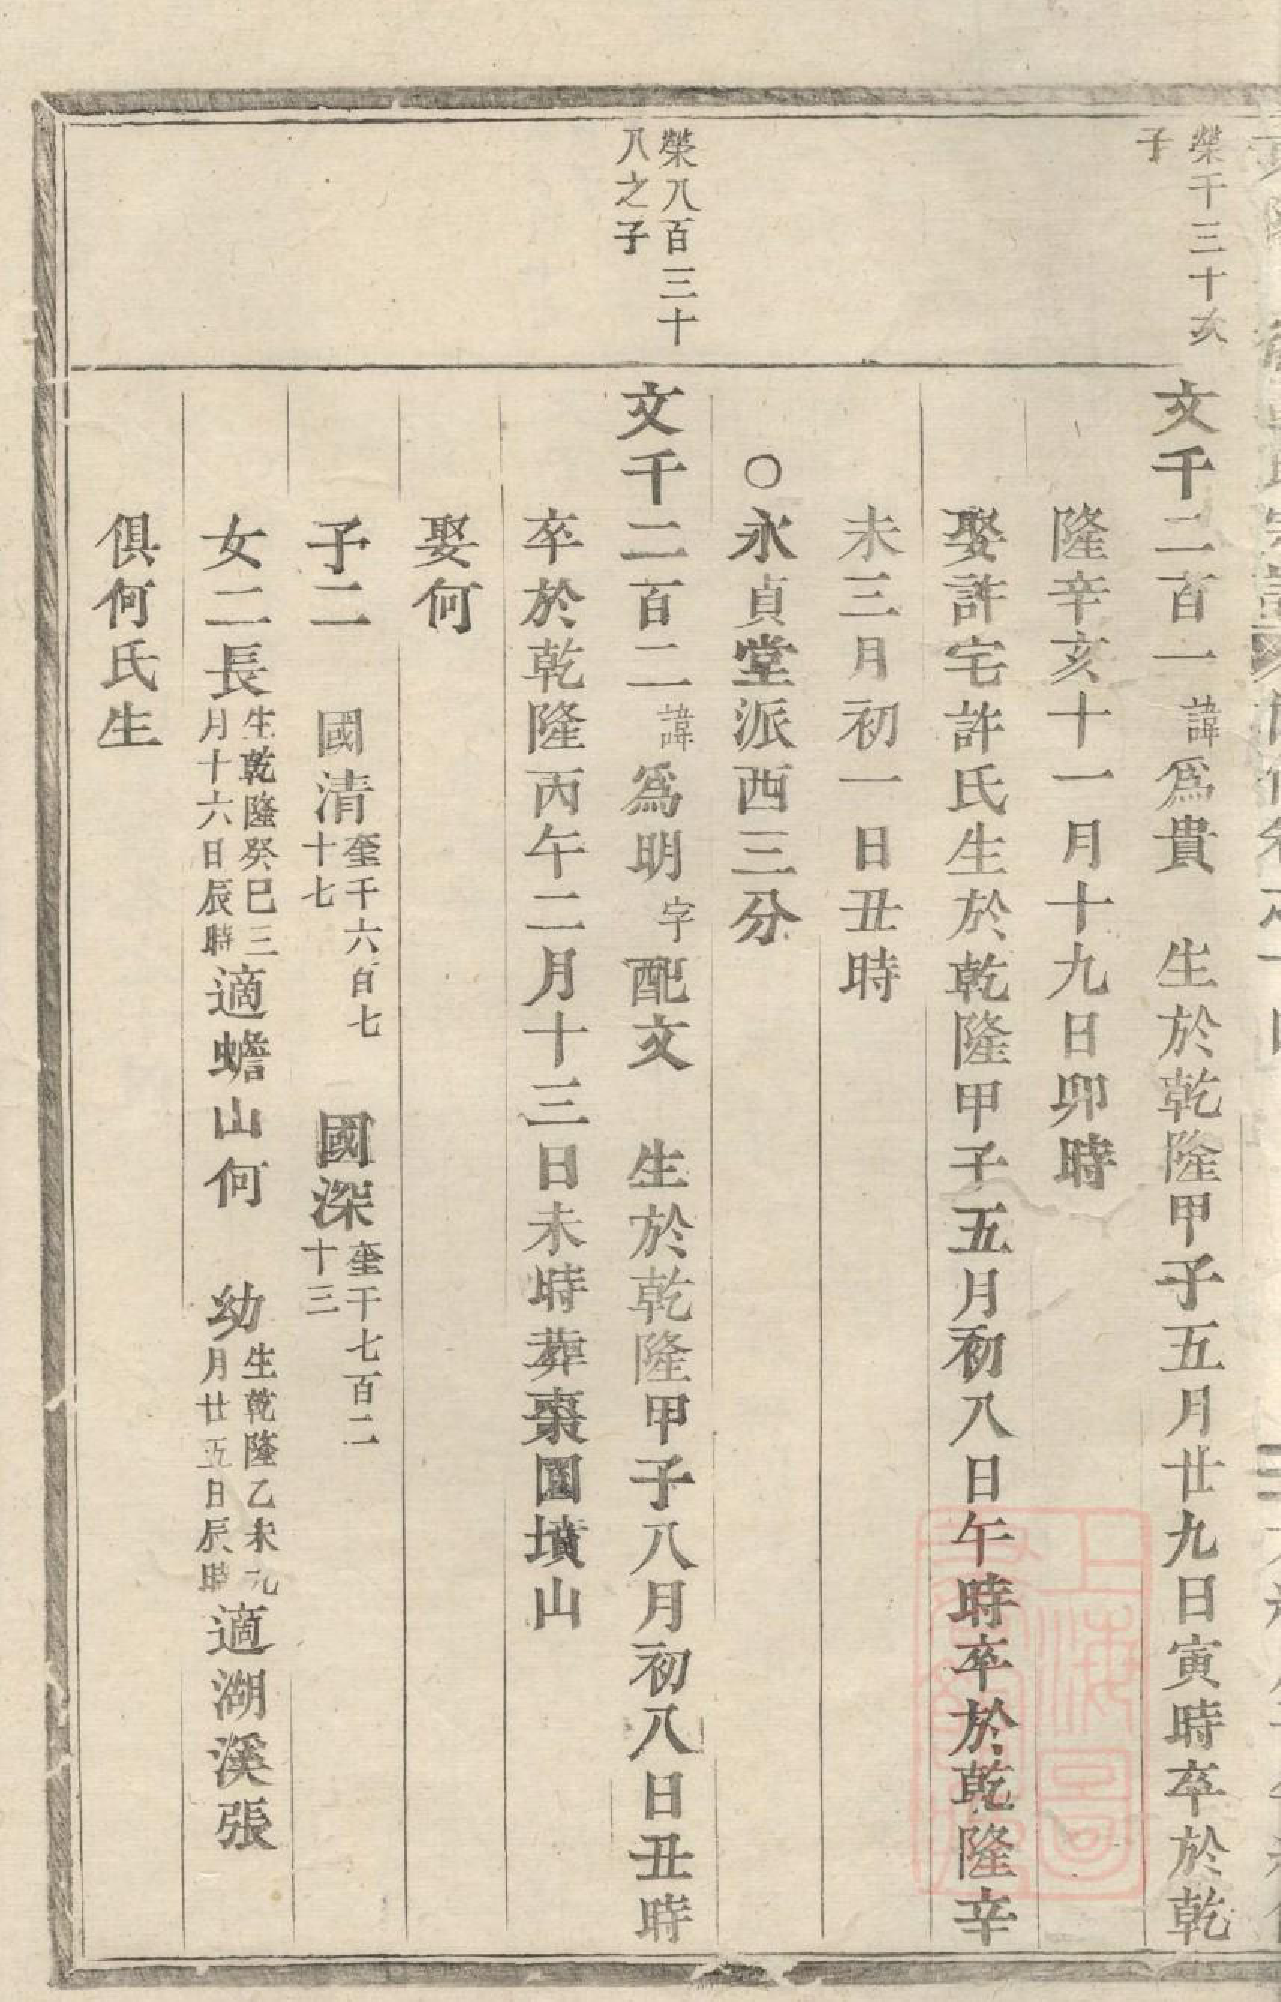 榮千三十亥
子
文千二百一諱爲貴　生於乾隆甲子五月廿九日寅時卒於乾
隆辛亥十一月十九日卯時
娶許宅許氏生於乾隆甲子五月初八日午時卒於乾隆辛
未三月初一日丑時
○永貞堂派西三分
榮八百三十
八之子
文千二百二諱爲明字配文　生於乾隆甲子八月初八日丑時
卒於乾隆丙午二月十三日未時葬棗園墳山
娶何
子二　國清奎千六百七十七　國深奎千七百二十三
女二長生乾隆癸巳三月十六日辰時適蟾山何　幼生乾隆乙未九月廿五日辰時適湖溪張
俱何氏生
上海圖